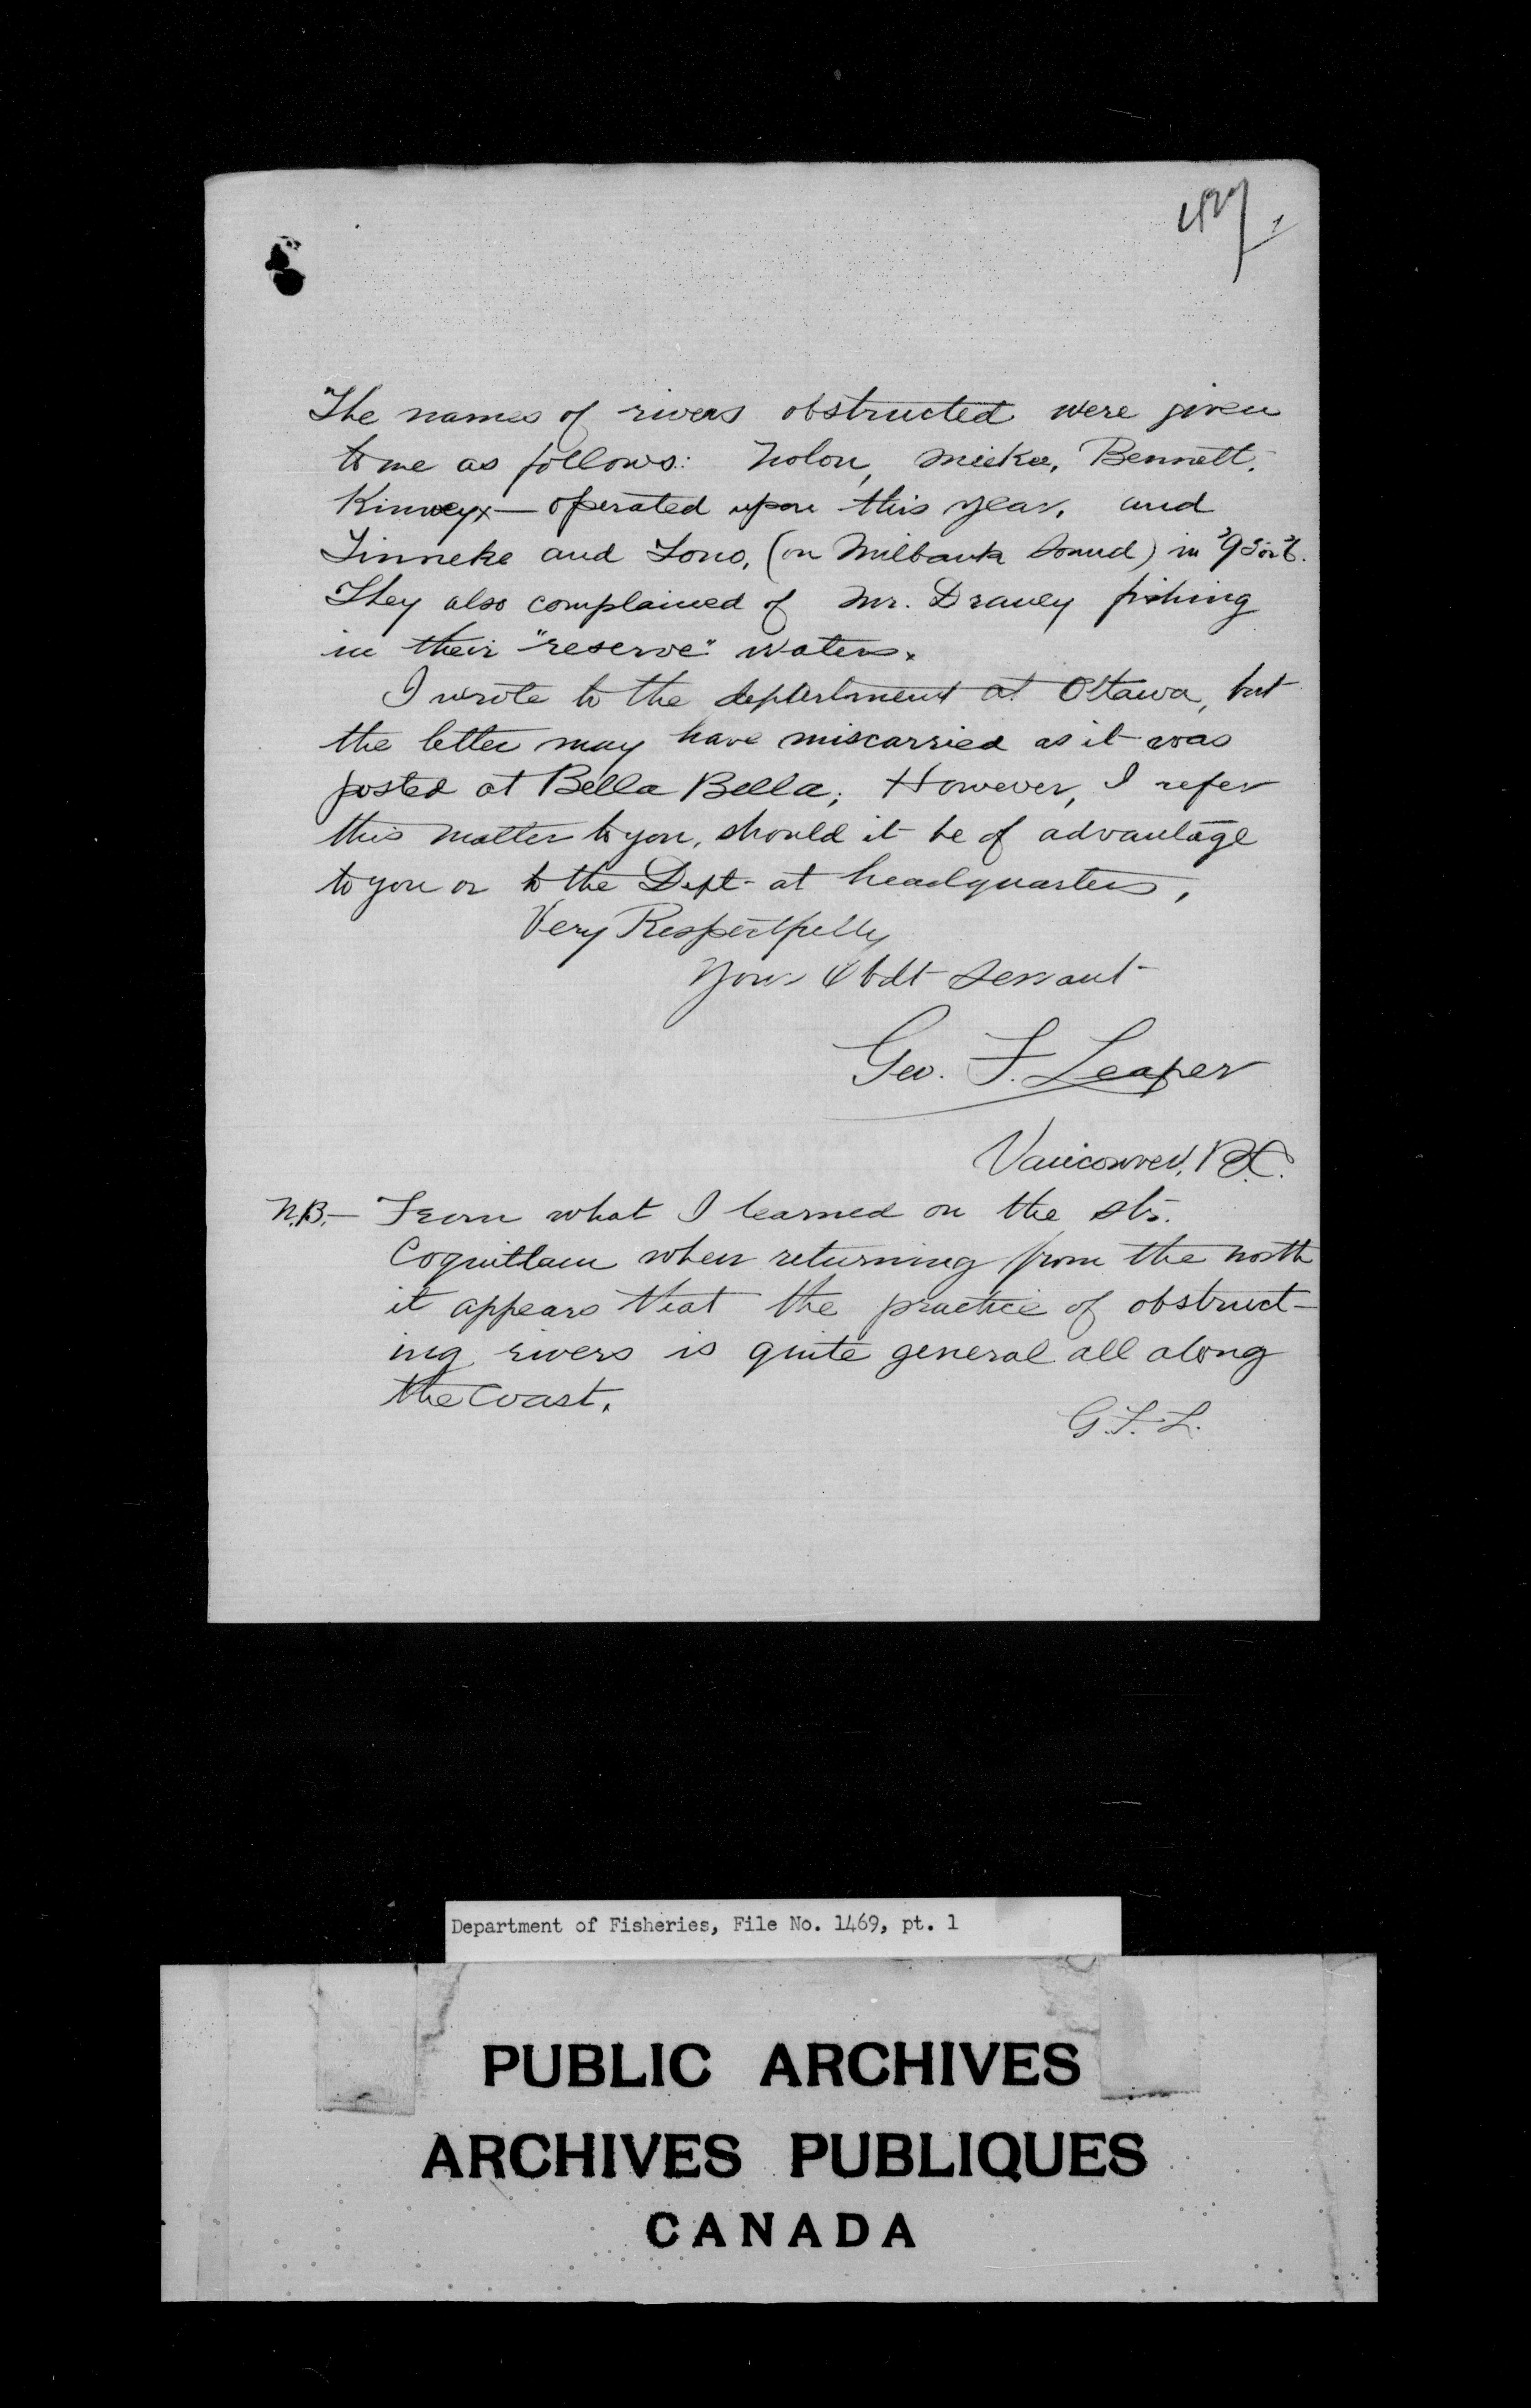 The names of rivers obstructed were given
to me as follows: Nolon, Meekee, Bennett,
Kinney — operated upon this year, and
Tinneke and Tono, (on Milbank Sound) in '95 or '6.
They also complained of Mr. Draney fishing
in their "reserve" waters.
I wrote to the department at Ottawa, but
the letter may have miscarried as it was
posted at Bella Bella; However, I refer
this matter to you, should it be of advantage
to you or to the Dept. at headquarters,
Very Respectfully
Your Obdt Servant
Geo. F. Leaper
Vancouver, B.C.
N.B. — From what I learned on the str.
Coquitlam when returning from the north
it appears that the practice of obstruct-
ing rivers is quite general all along
the Coast.
G.F.L.
Department of Fisheries, File No. 1469, pt. 1
PUBLIC ARCHIVES
ARCHIVES PUBLIQUES
CANADA